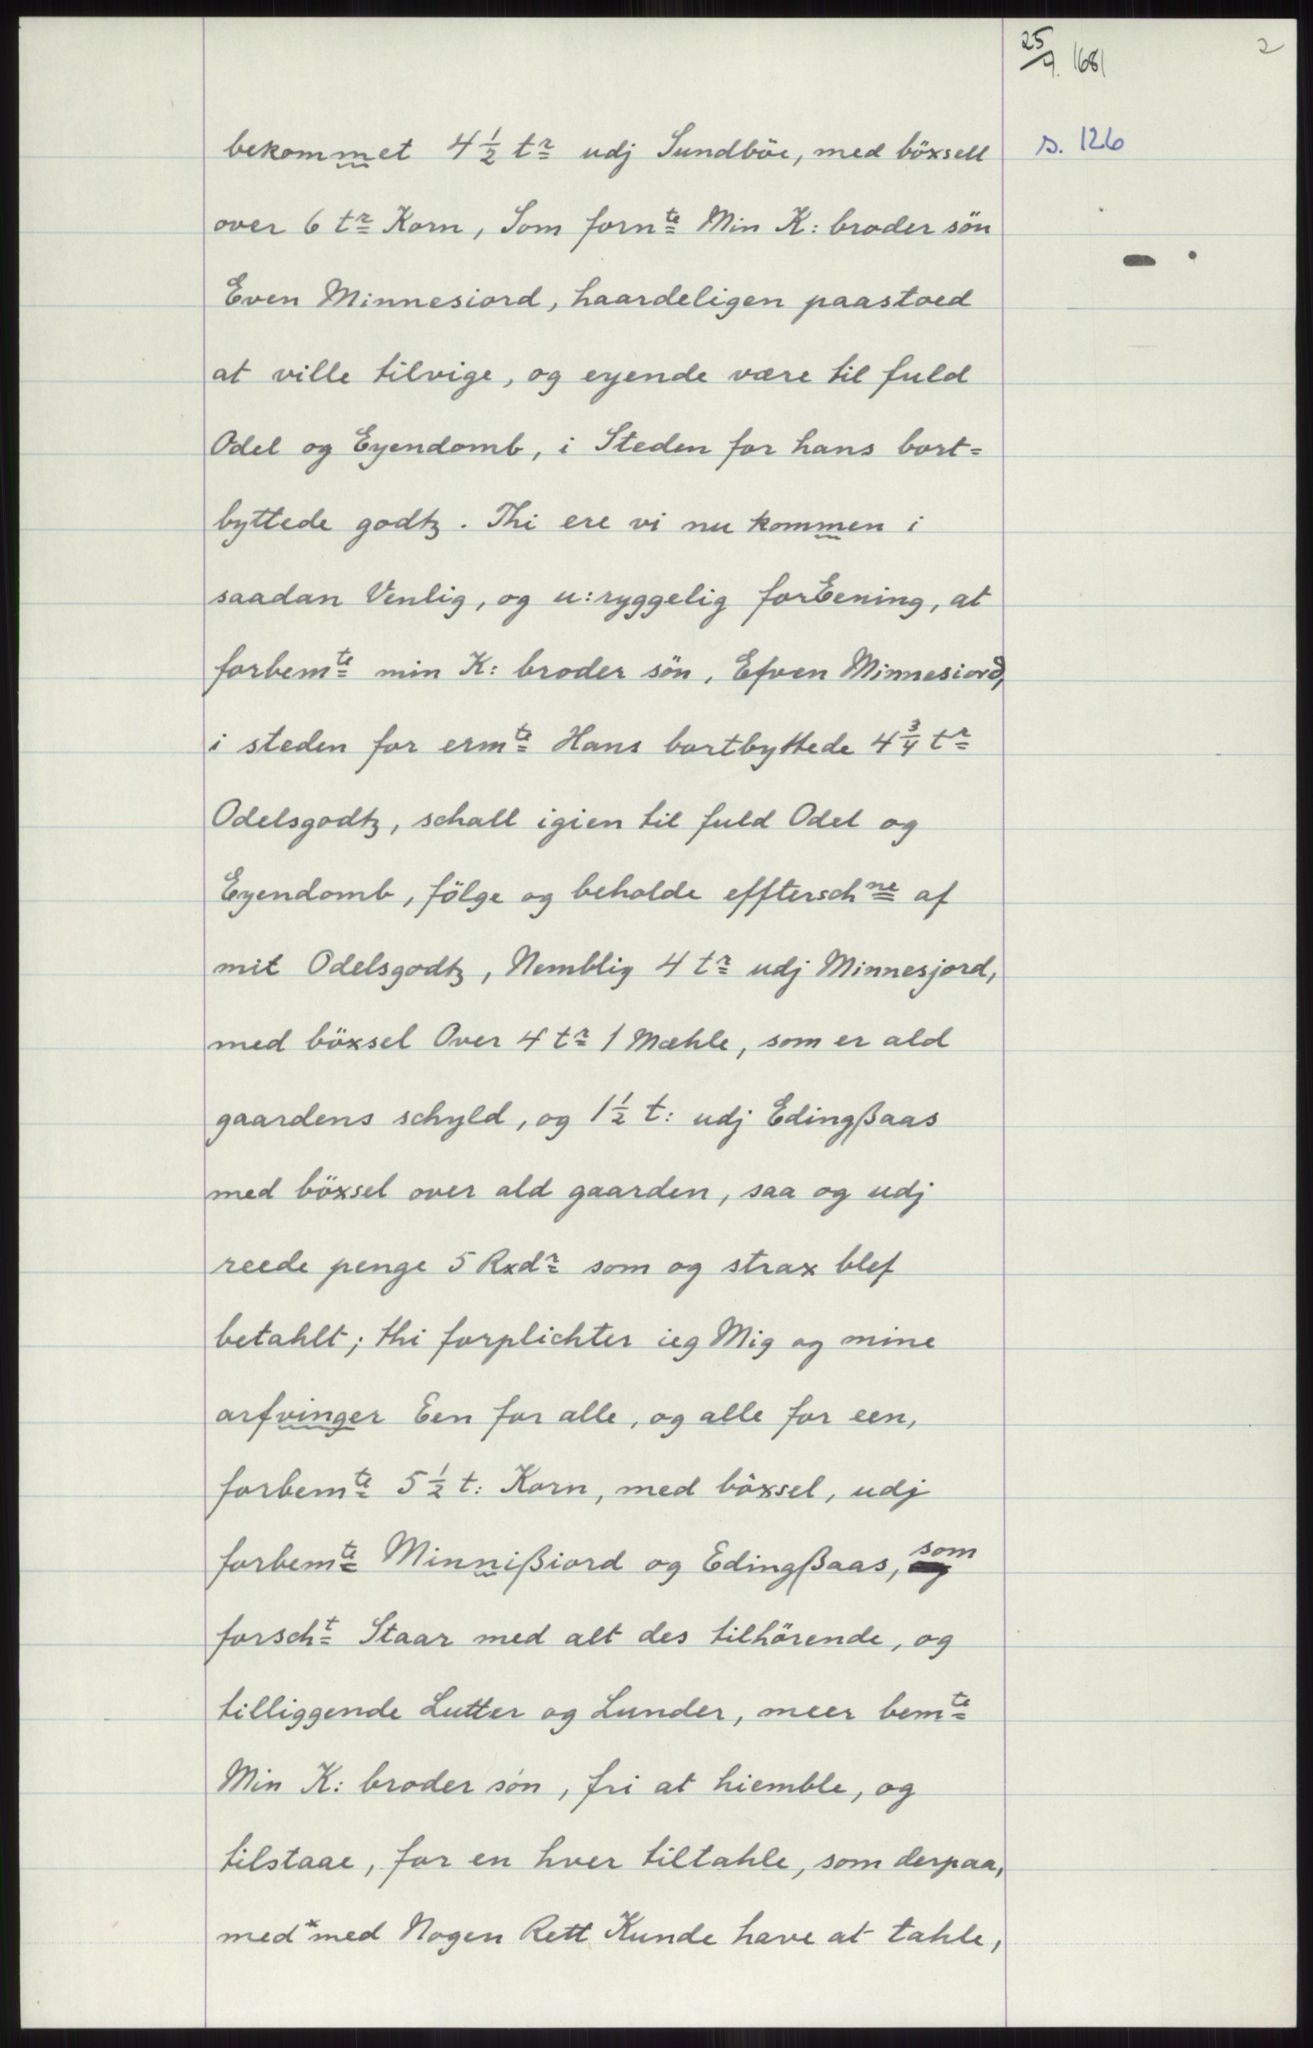 25/9. 1681
2
s. 126
bekommet 4 1/2 tr udj Sundböe, med böxsell
over 6 tr Korn, Som fornte Min K: broder sön
Even Minnesiord, haardeligen paastoed
at ville tilvige, og eyende være til fuld
Odel og Eyendomb, i Steden for hans bort=
byttede godtz. Thi ere vi nu kommen i
saadan Venlig, og u:ryggelig forEening, at
forbemte min K: broder sön, Efven Minnesiord,
i steden for ermte Hans bortbyttede 4 3/4 tr
Odelsgodtz, schall igien til fuld Odel og
Eyendomb, fölge og beholde effterschne af
mit Odelsgodtz, Nemblig 4 tr udj Minnesjord,
med böxsel Over 4 tr 1 Mæhle, som er ald
gaardens schyld, og 1 1/2 t: udj Edingßaas
med böxsel over ald gaarden, saa og udj
reede penge 5 Rxdr som og strax blef
betahlt; thi forplichter ieg Mig og mine
arfvinger Een for alle, og alle for een,
forbemte 5 1/2 t: Korn, med böxsel, udj
forbemte Minnißiord og Edingßaas, som
forscht Staar med alt des tilhörende, og
tilliggende Lutter og Lunder, meer bemte
Min K: broder sön, fri at hiemble, og
tilstaae, for en hver tiltahle, som derpaa,
med* med Nogen Rett Kunde have at tahle,